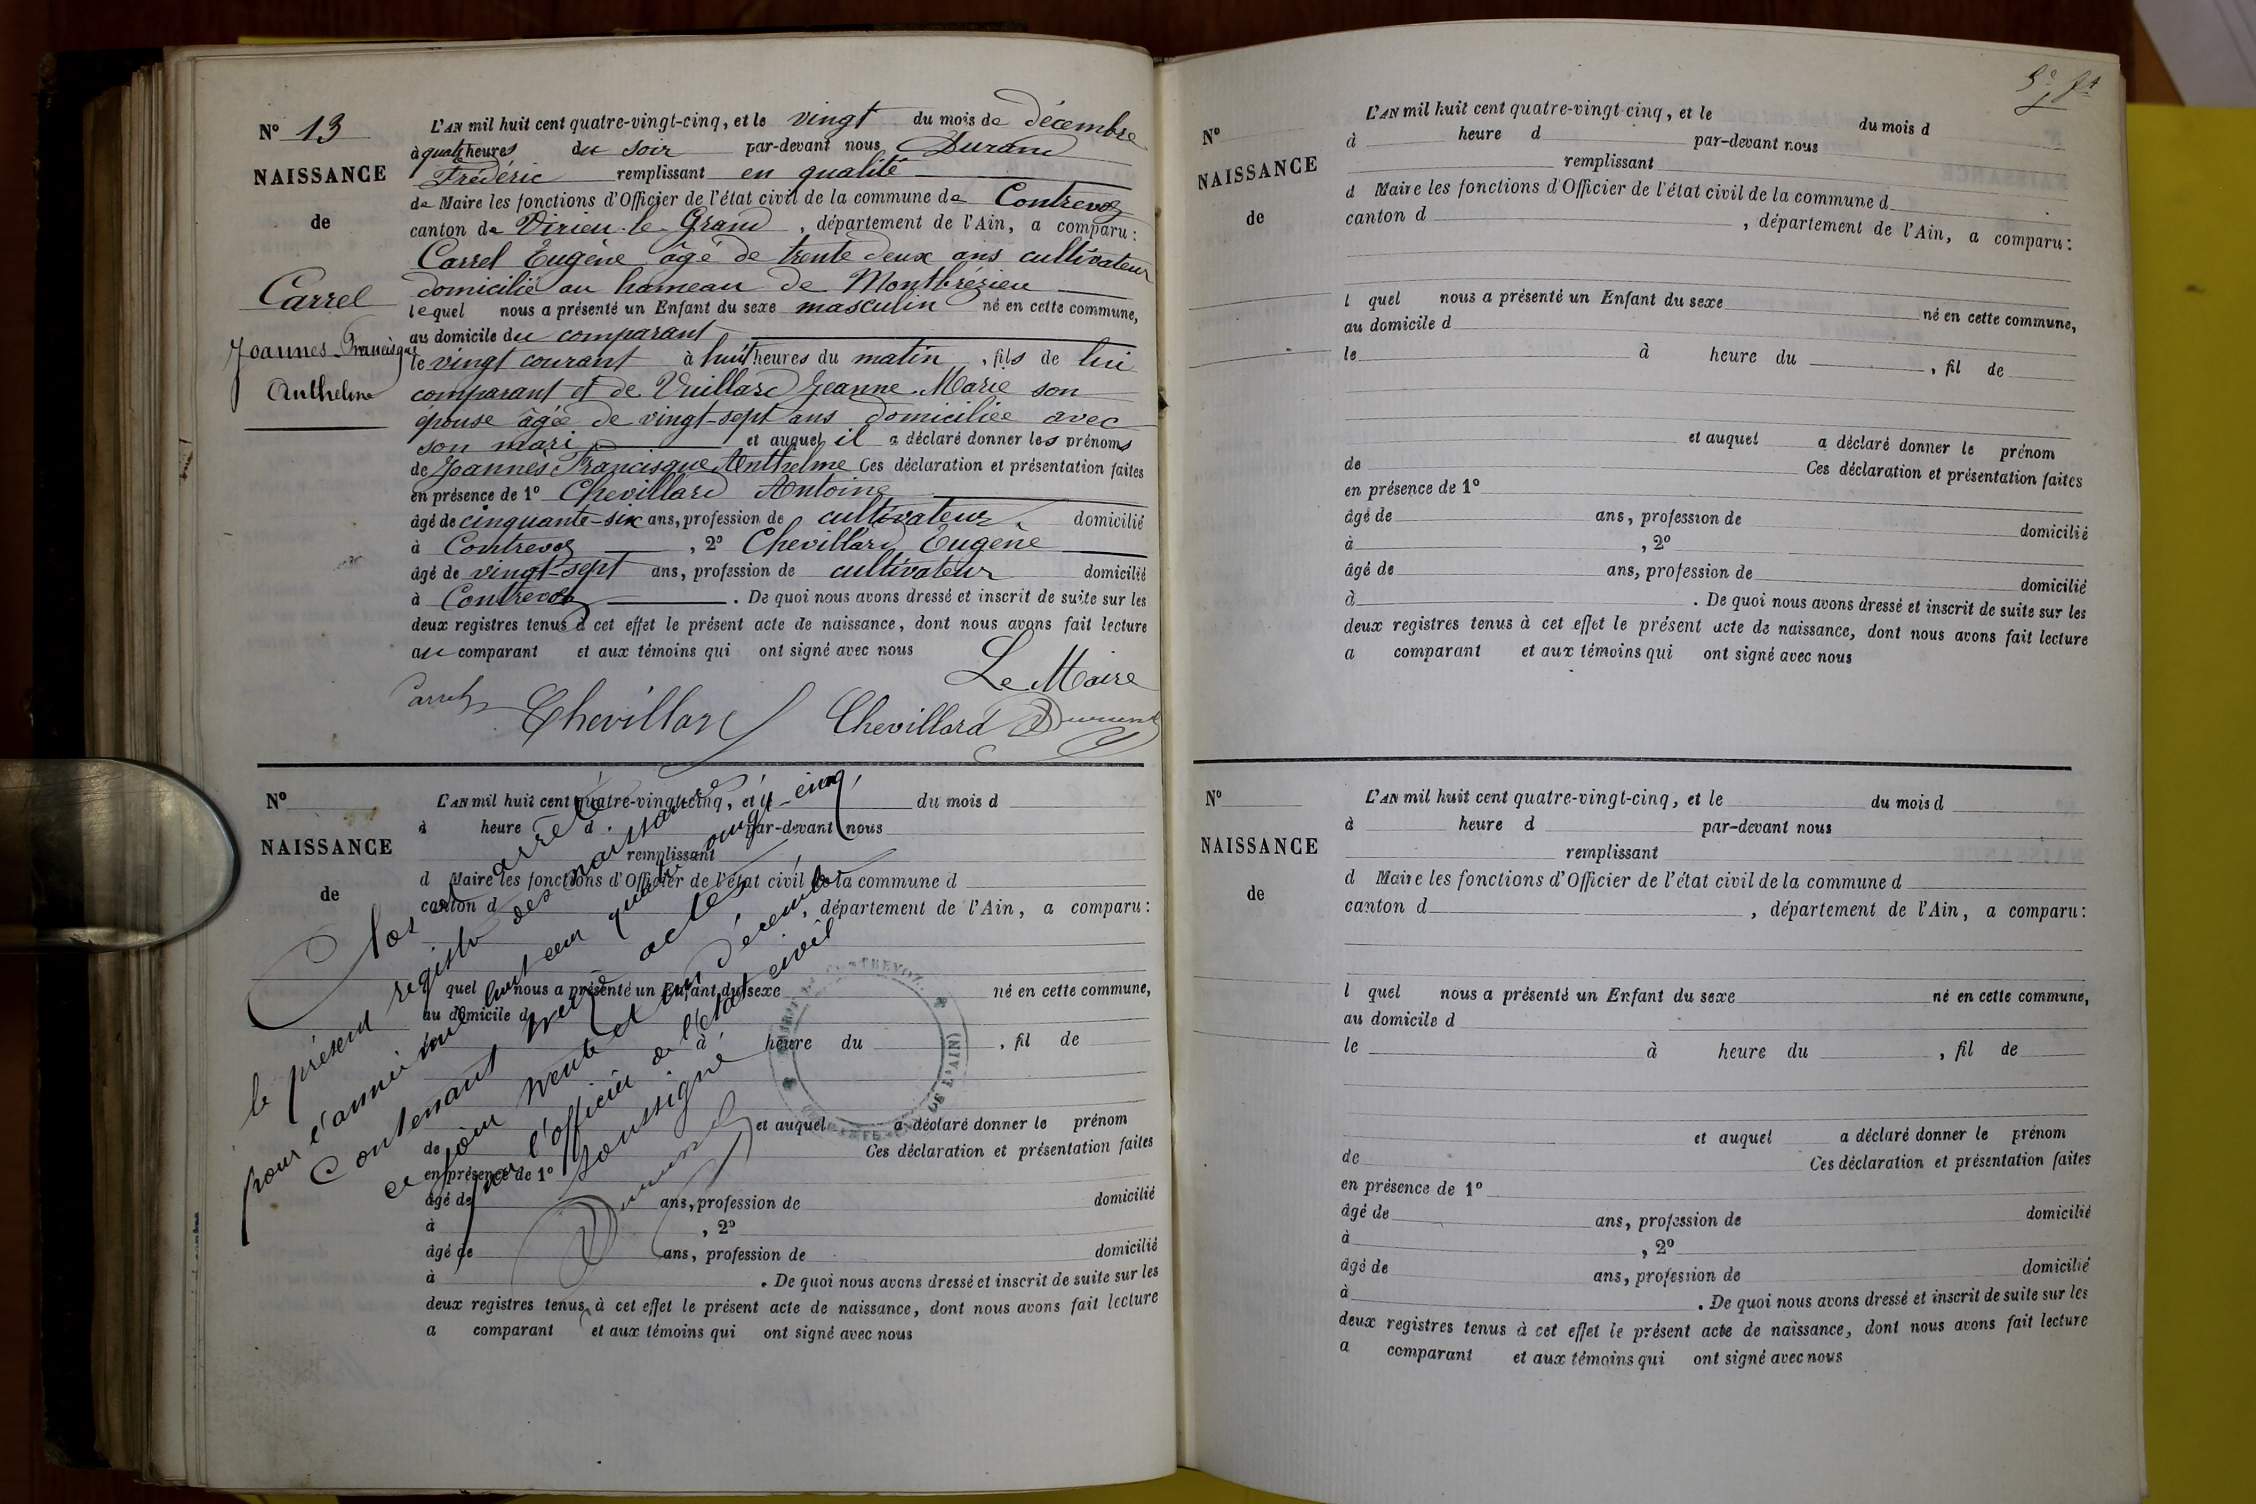 N° 13
NAISSANCE
de
Carrel
Joannes-Francisque
Anthelme
L'AN mil huit cent quatre-vingt-cinq, et le vingt du mois de décembre
à quatre heures du soir par-devant nous Durand
Frédéric remplissant en qualité
de Maire les fonctions d'Officier de l'état civil de la commune de Contrevoz
canton de Virieu-le-Grand, département de l'Ain, a comparu:
Carrel Eugène âgé de trente deux ans cultivateur
domicilié au hameau de Montbrézieu
lequel nous a présenté un Enfant du sexe masculin né en cette commune,
au domicile du comparant
le vingt courant à huit heures du matin, fils de lui
comparant et de Vuillard Jeanne Marie son
épouse âgée de vingt-sept ans domiciliée avec
son mari et auquel il a déclaré donner les prénoms
de Joannès Francisque Anthelme Ces déclaration et présentation faites
en présence de 1° Chevillard Antoine
âgé de cinquante-six ans, profession de cultivateur domicilié
à Contrevoz, 2° Chevillard Eugène
âgé de vingt-sept ans, profession de cultivateur domicilié
à Contrevoz. De quoi nous avons dressé et inscrit de suite sur les
deux registres tenus à cet effet le présent acte de naissance, dont nous avons fait lecture
au comparant et aux témoins qui ont signé avec nous
Le Maire
Carrel Chevillard Chevillard Durand
N°
NAISSANCE
de
L'AN mil huit cent quatre-vingt-cinq, et le du mois d
à heure d par-devant nous
remplissant
d Maire les fonctions d'Officier de l'état civil de la commune d
canton d , département de l'Ain, a comparu:
l quel nous a présenté un Enfant du sexe né en cette commune,
au domicile d
le à heure du , fil de
et auquel a déclaré donner le prénom
de Ces déclaration et présentation faites
en présence de 1°
âgé de ans, profession de domicilié
à , 2°
âgé de ans, profession de domicilié
à . De quoi nous avons dressé et inscrit de suite sur les
deux registres tenus à cet effet le présent acte de naissance, dont nous avons fait lecture
a comparant et aux témoins qui ont signé avec nous
Clos et arrêté
le présent registre des naissances
pour l'année mil huit cent quatre vingt-cinq,
Contenant treize actes
ce jour trente et un Décembre
par l'officier de l'Etat civil
soussigné
Durand
CONTREVOZ
DE L'AIN
N°
NAISSANCE
de
L'AN mil huit cent quatre-vingt-cinq, et le du mois d
à heure d par-devant nous
remplissant
d Maire les fonctions d'Officier de l'état civil de la commune d
canton d , département de l'Ain, a comparu:
l quel nous a présenté un Enfant du sexe né en cette commune,
au domicile d
le à heure du , fil de
et auquel a déclaré donner le prénom
de Ces déclaration et présentation faites
en présence de 1°
âgé de ans, profession de domicilié
à , 2°
âgé de ans, profession de domicilié
à . De quoi nous avons dressé et inscrit de suite sur les
deux registres tenus à cet effet le présent acte de naissance, dont nous avons fait lecture
a comparant et aux témoins qui ont signé avec nous
N°
NAISSANCE
de
L'AN mil huit cent quatre-vingt-cinq, et le du mois d
à heure d par-devant nous
remplissant
d Maire les fonctions d'Officier de l'état civil de la commune d
canton d , département de l'Ain, a comparu:
l quel nous a présenté un Enfant du sexe né en cette commune,
au domicile d
le à heure du , fil de
et auquel a déclaré donner le prénom
de Ces déclaration et présentation faites
en présence de 1°
âgé de ans, profession de domicilié
à , 2°
âgé de ans, profession de domicilié
à . De quoi nous avons dressé et inscrit de suite sur les
deux registres tenus à cet effet le présent acte de naissance, dont nous avons fait lecture
a comparant et aux témoins qui ont signé avec nous